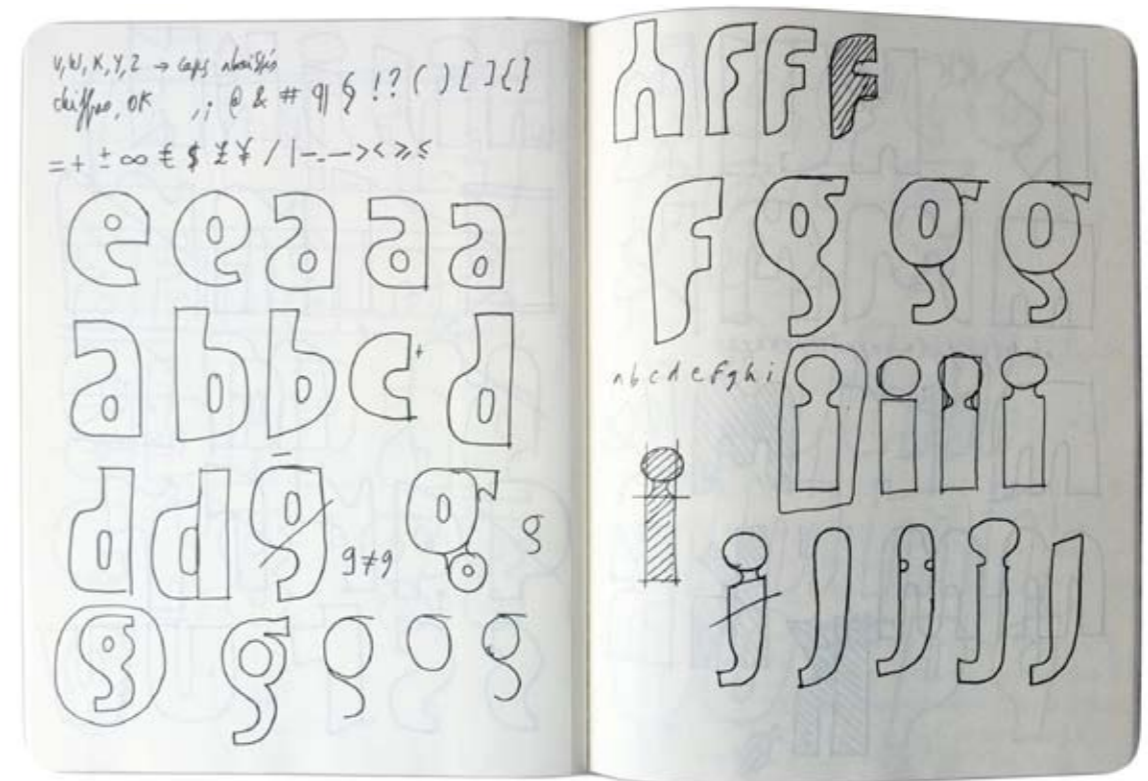 V, W, X, Y, Z → caps
chiffres, OK , ; @ & # ¶ § ! ? ( ) [ ] { }
= + ± ∞ € $ £ ¥ / | - . - > < ≥ ≤
e e a a a
a b b c + d
d d g g≠9 g g
g g g o g
h f f f
f g g g
a b c d e f g h i i i i i
i
j j j j j